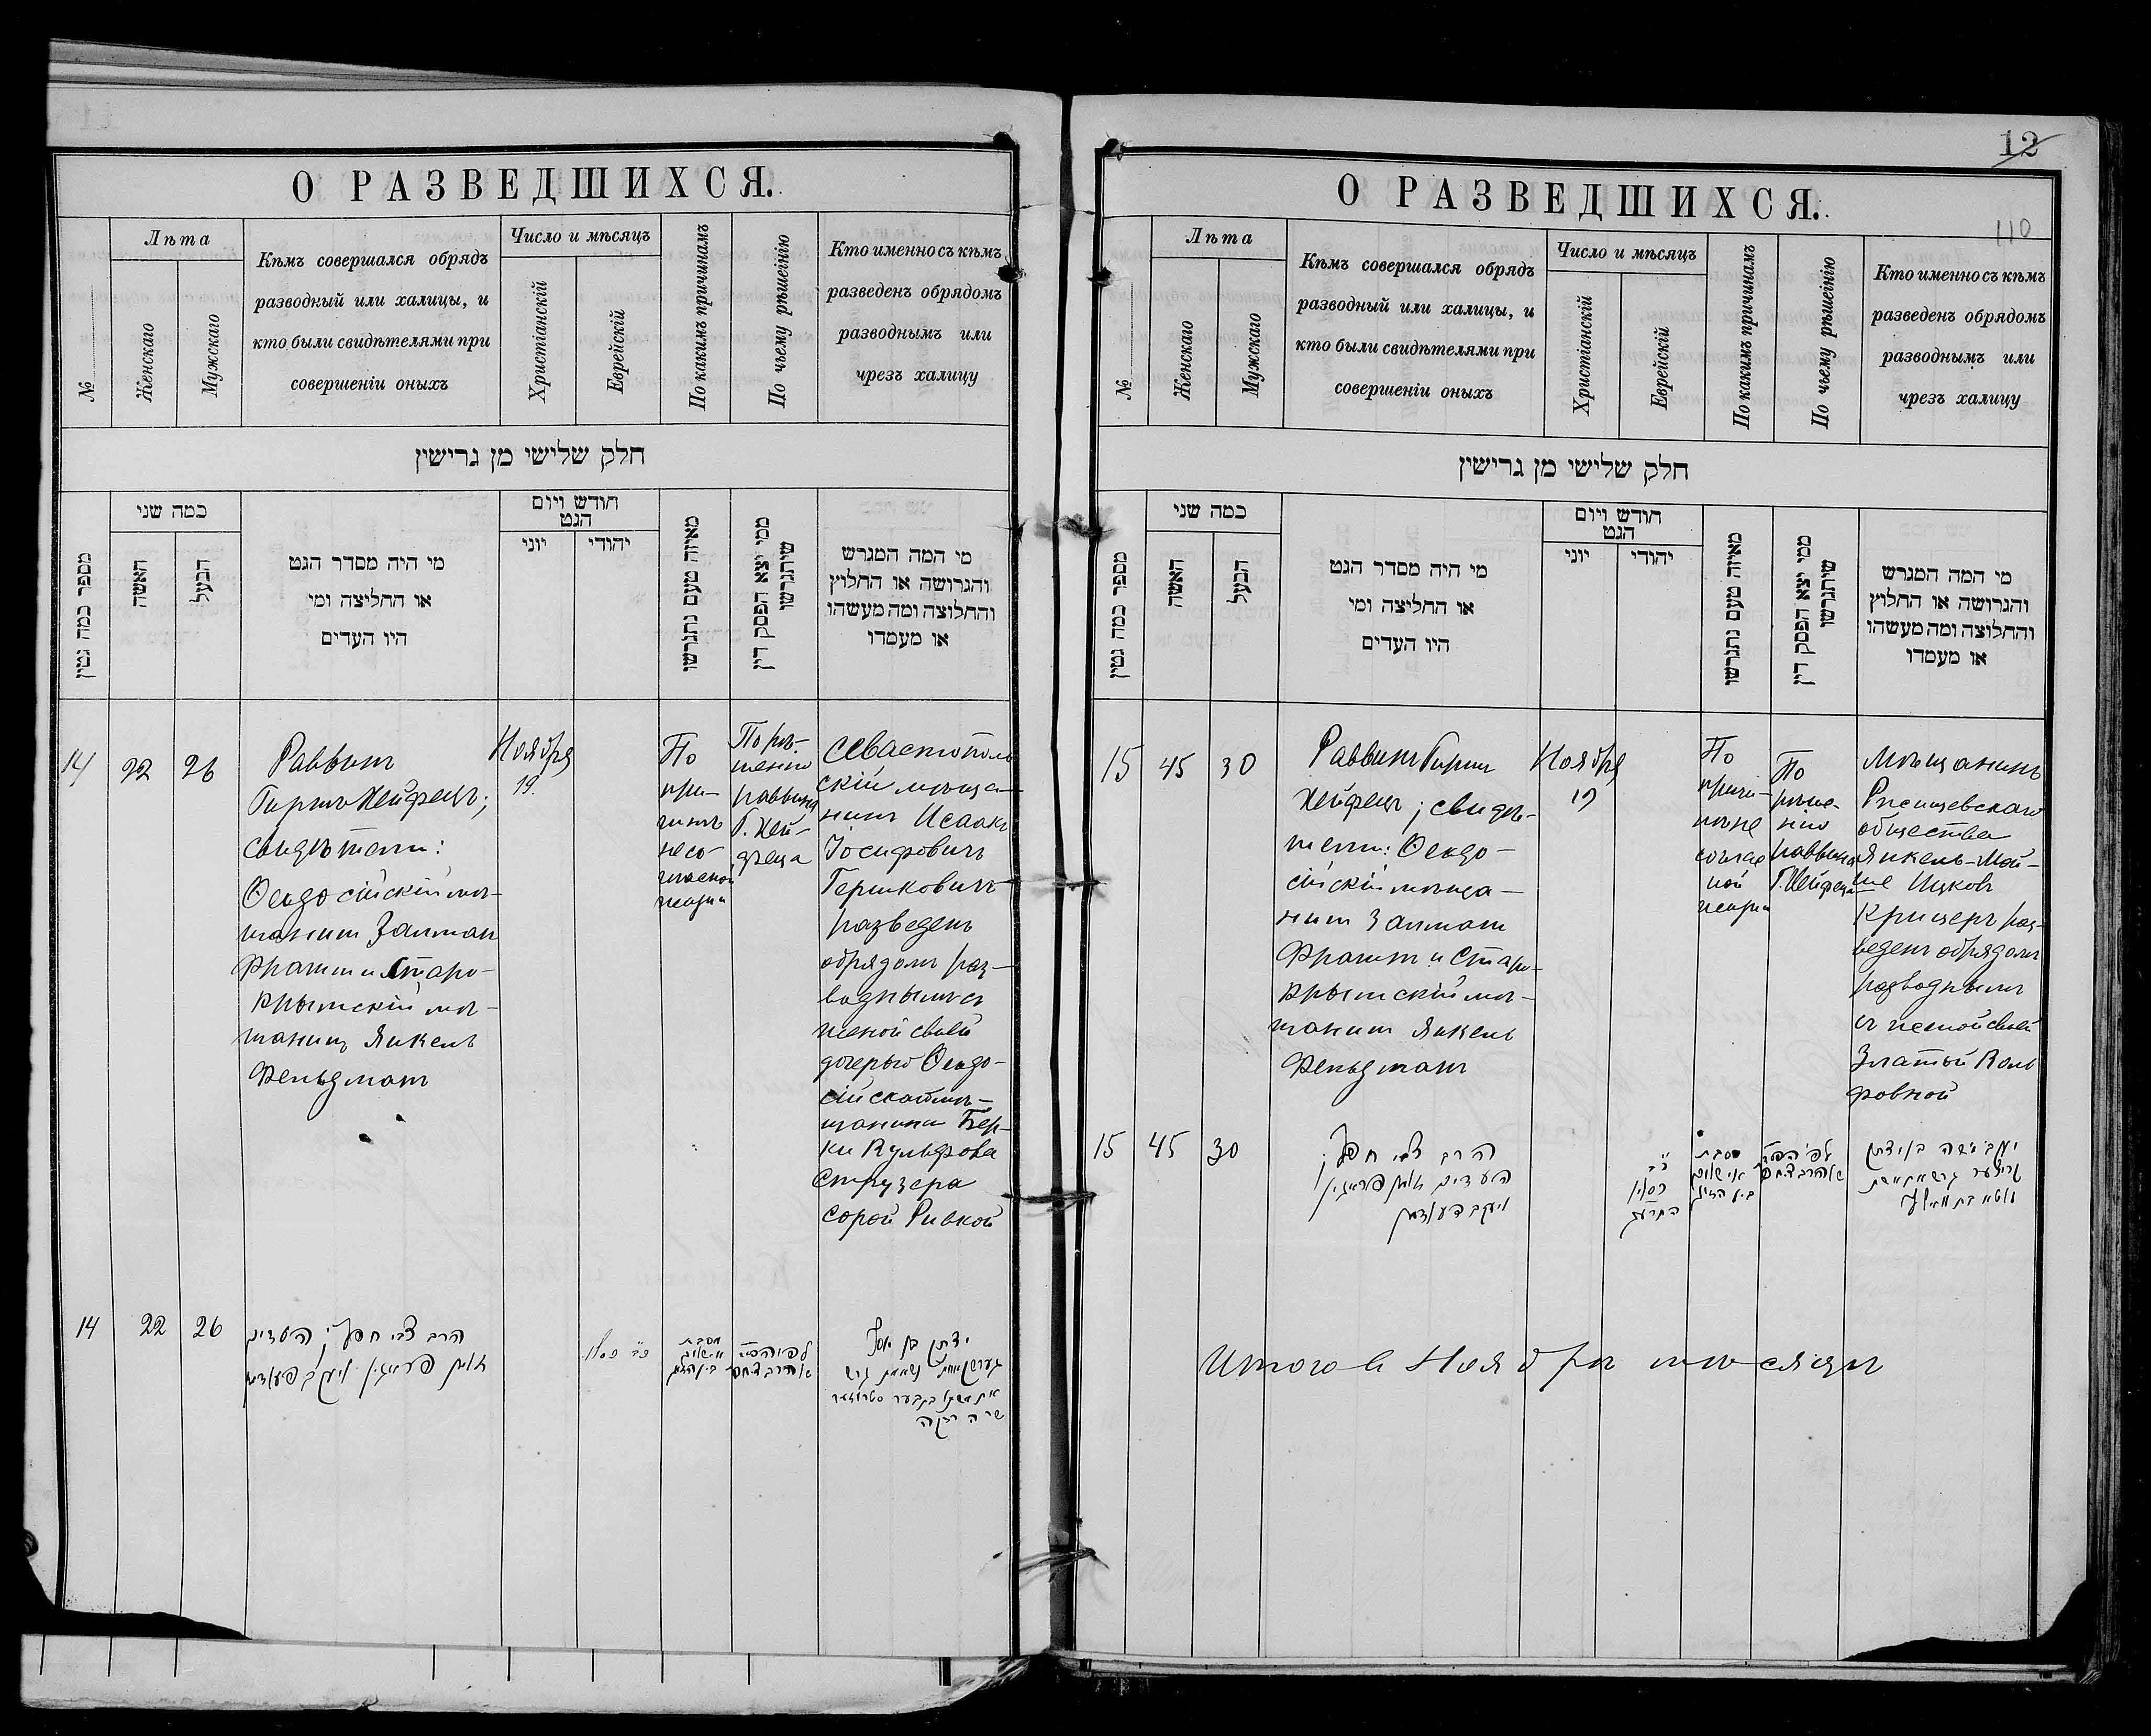 О РАЗВЕДШИХСЯ.
№
Лѣта
Женскаго
Мужскаго
Кѣмъ совершался обрядъ
разводный или халицы, и
кто были свидѣтелями при
совершеніи оныхъ
Число и мѣсяцъ
Христіанскій
Еврейскій
По какимъ причинамъ
По чьему рѣшенію
Кто именно съ кѣмъ
разведенъ обрядомъ
разводнымъ или
чрезъ халицу
חלק שלישי מן גרישין
מספר כמה גטין
כמה שני
האשה
הבעל
מי היה מסדר הגט
או החליצה ומי
היו העדים
חודש ויום
הגט
יוני
יהודי
מאיזה טעם נתגרשו
ממי יצא הפסק דין
שיתגרשו
מי המה המגרש
והגרושה או החלוץ
והחלוצה ומה מעשהו
או מעמדו
14
22
26
Раввинъ
Гиршъ Хейфецъ;
свидѣтели:
Ѳеодосійскій мѣ-
щанинъ Залман
Фрагин и Старо-
крымскій мѣ-
щанинъ Янкель
Фельдманъ
Ноября
19.
По
при-
чинѣ
несо-
гласной
жизни
По рѣ-
шенію
раввина
Г. Хей-
феца
Севастополь
скій мѣща-
нинъ Исаакъ
Іосифовичъ
Гершковичъ
разведенъ
обрядомъ раз-
воднымъ съ
женой своей
дочерью Ѳеодо-
сійскаго мѣ-
щанина Бер-
ки Вульфова
Струзера
Сорой Ривкой
14
22
26
הרב צבי חפץ; העדים
זלמן פראגין ויעקב פעלדמן
כב כסלו
יצחק בן יוסף
שרה רבקה
12
110
О РАЗВЕДШИХСЯ.
№
Лѣта
Женскаго
Мужскаго
Кѣмъ совершался обрядъ
разводный или халицы, и
кто были свидѣтелями при
совершеніи оныхъ
Число и мѣсяцъ
Христіанскій
Еврейскій
По какимъ причинамъ
По чьему рѣшенію
Кто именно съ кѣмъ
разведенъ обрядомъ
разводнымъ или
чрезъ халицу
חלק שלישי מן גרישין
מספר כמה גטין
כמה שני
האשה
הבעל
מי היה מסדר הגט
או החליצה ומי
היו העדים
חודש ויום
הגט
יוני
יהודי
מאיזה טעם נתגרשו
ממי יצא הפסק דין
שיתגרשו
מי המה המגרש
והגרושה או החלוץ
והחלוצה ומה מעשהו
או מעמדו
15
45
30
Раввинъ Гирш
Хейфецъ; свидѣ-
тели: Ѳеодо-
сійскій мѣща-
нинъ Залманъ
Фрагинъ и Старо-
крымскій мѣ-
щанинъ Янкель
Фельдманъ
Ноября
19
По
причи-
нѣ не
соглас
ной
жизни
По
рѣше-
нію
раввина
Г. Хейфеца
Мѣщанинъ
Ржищевскаго
общества
Янкель-Мой-
ше Ицковъ
Крицеръ раз-
веденъ обрядомъ
разводнымъ
съ женой своей
Златой Воль
фовной
15
45
30
הרב צבי חפץ;
העדים זלמן פראגין
ויעקב פעלדמן
כב
כסלו
Итого въ Ноябрѣ мѣсяцѣ